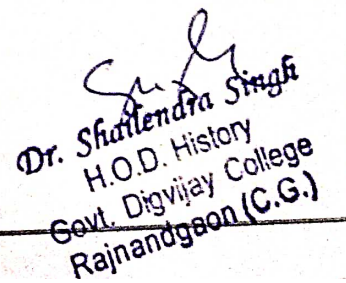 Dr. Shailendra Singh
H.O.D. History
Govt. Digvijay College
Rajnandgaon (C.G.)